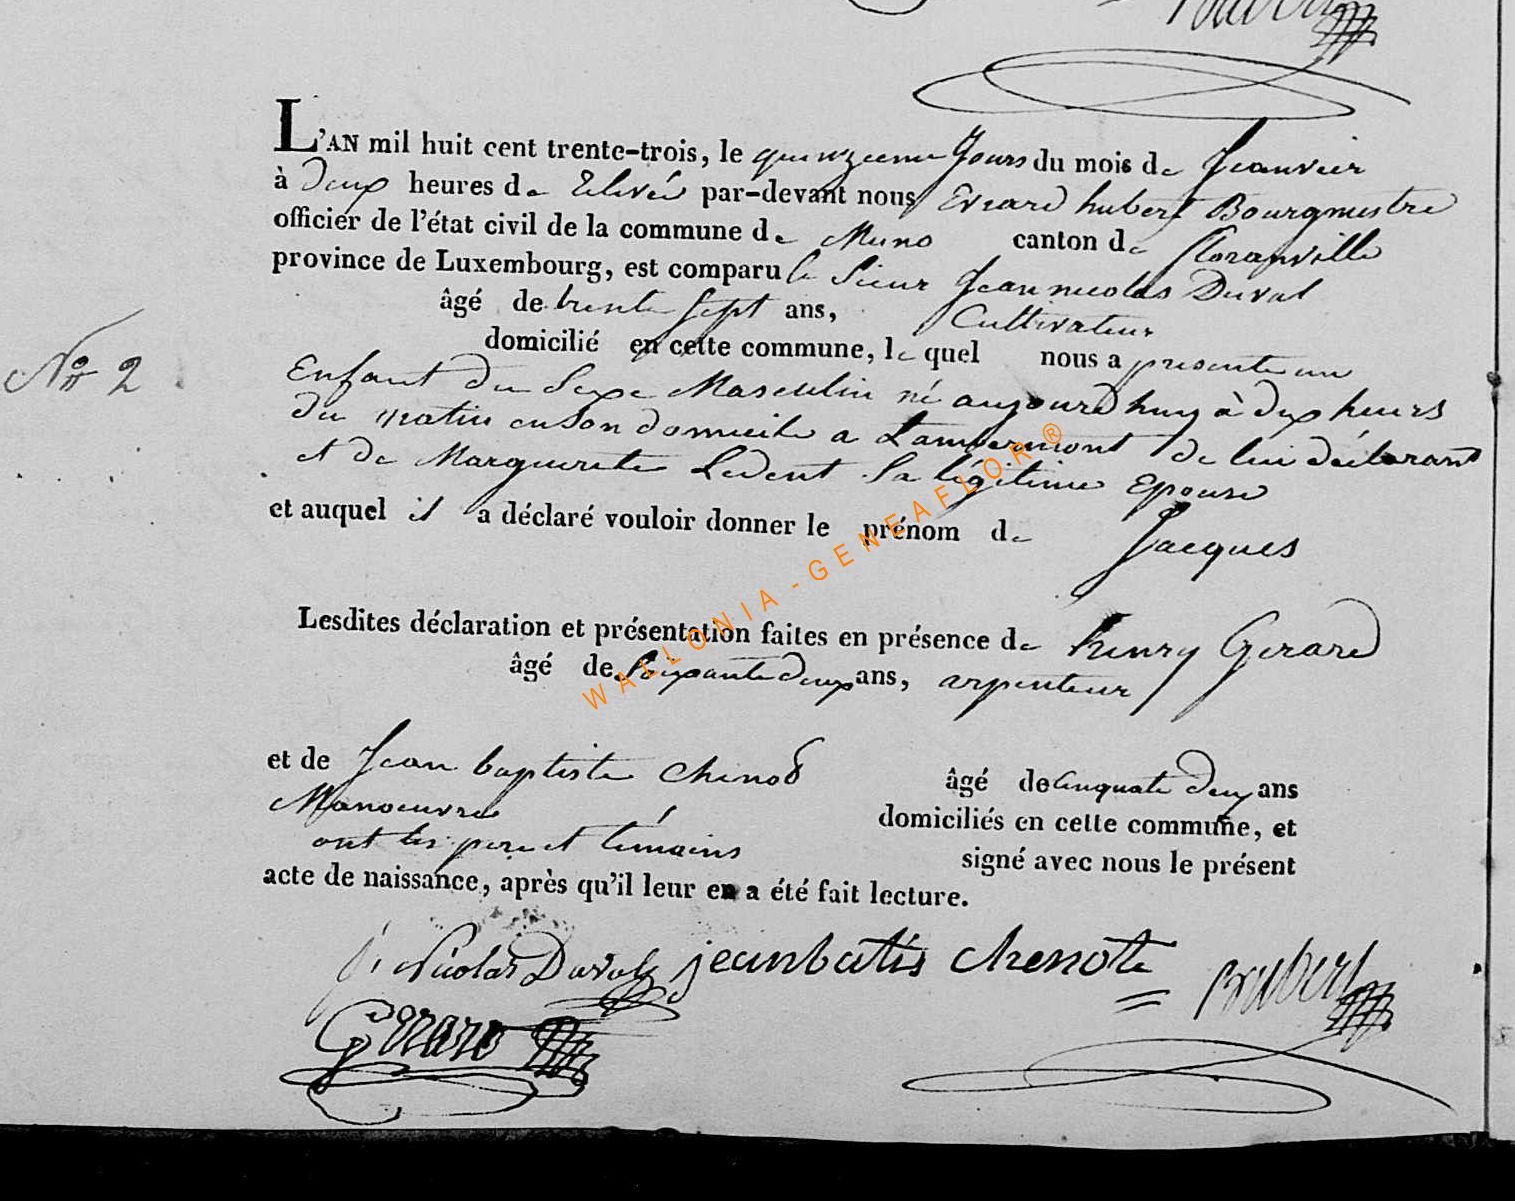 L'AN mil huit cent trente-trois, le quinzieme Jours du mois de Jeanvier
à deux heures de Relevée par-devant nous Evrard hubert Bourgmestre
officier de l'état civil de la commune de Muno canton de floranville
province de Luxembourg, est comparu le Sieur Jean nicolas Duval
âgé de trente Sept ans, Cultivateur
domicilié en cette commune, le quel nous a presente un
N° 2
Enfant du Sexe Masculin né aujourd huy à dix heures
du matin en Son domicile a Lambermont de lui déclarant
et de Marguerite Ledent Sa légitime Epouse
et auquel il a déclaré vouloir donner le prénom de Jacques
Lesdites déclaration et présentation faites en présence de henry Gerard
âgé de Soixante deux ans, arpenteur
et de Jean baptiste Chenot âgé de Cinquate deux ans
Manoeuvre domiciliés en cette commune, et
ont les pere et témoins signé avec nous le présent
acte de naissance, après qu'il leur en a été fait lecture.
j. Nicolas Duval jeanbatis chenote
Gerard
WALLONIA-GENEAFLOR ®